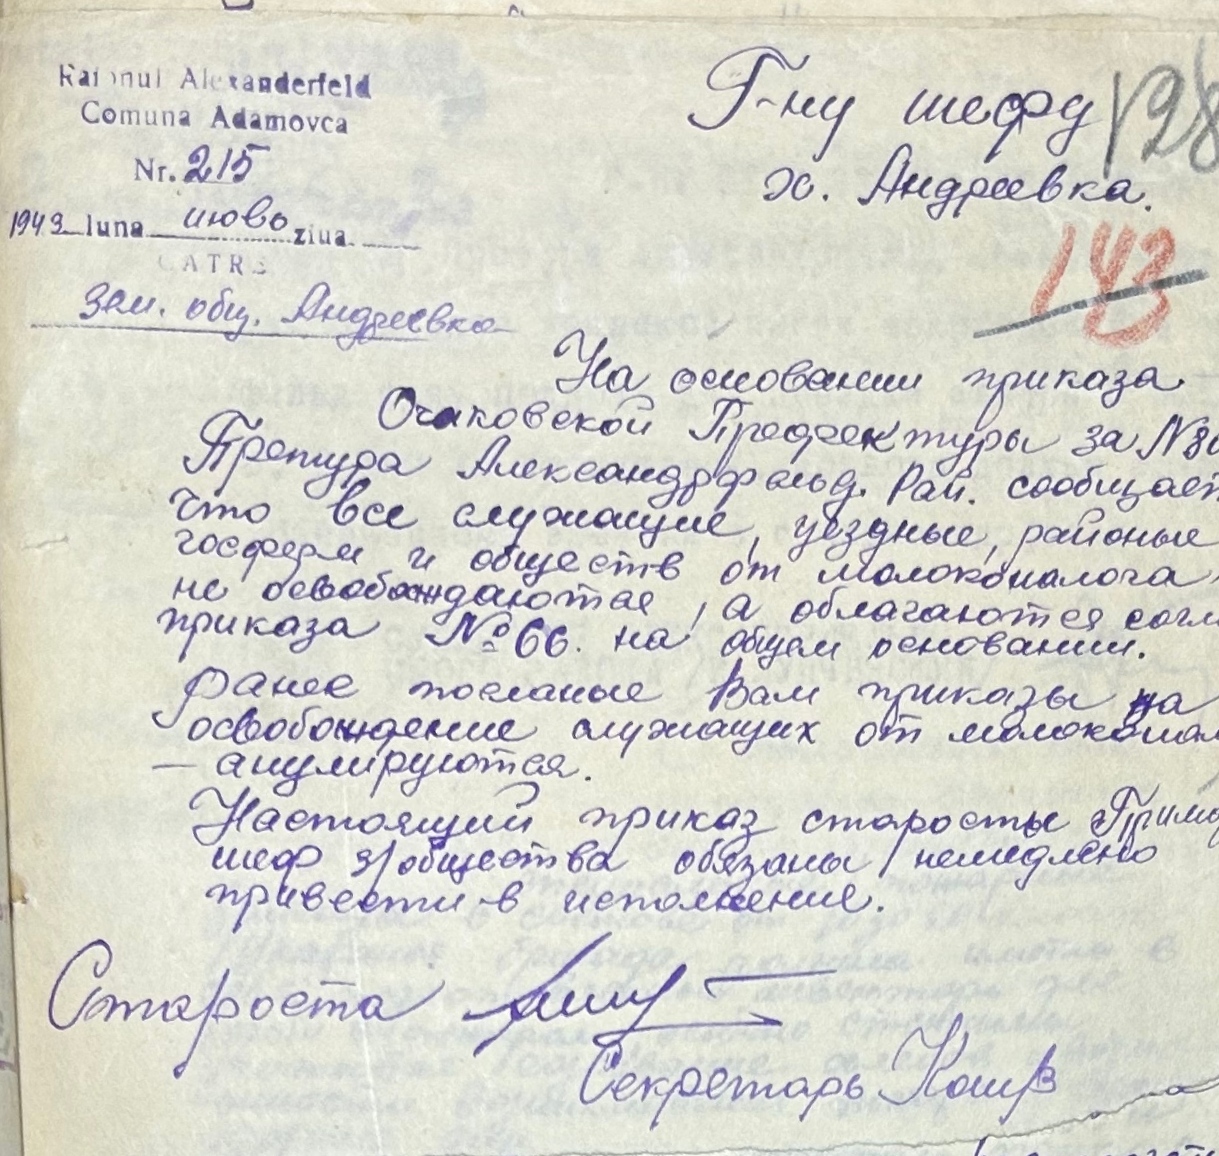 Raionul Alexanderfeld
Comuna Adamovca
Nr. 215
1943 luna июво ziua
CATRE
Зем. общ. Андреевка
Г-ну шефу
х. Андреевка.
128
143
На основании приказа
Очаковской Префектуры за №
Претура Александрфельд. Рай. сообщает
что все служащие, уездные, районые
госферм и обществ от молоконалога
не освобождаются, а облагаются согл
приказа № 66. на общем основании.
Ранее посланые Вам приказы на
освобождение служащих от молоконал
— анулируются.
Настоящий приказ старосты Прима
шеф з/общества обязаны немедлено
привести в исполнение.
Староста
Секретарь